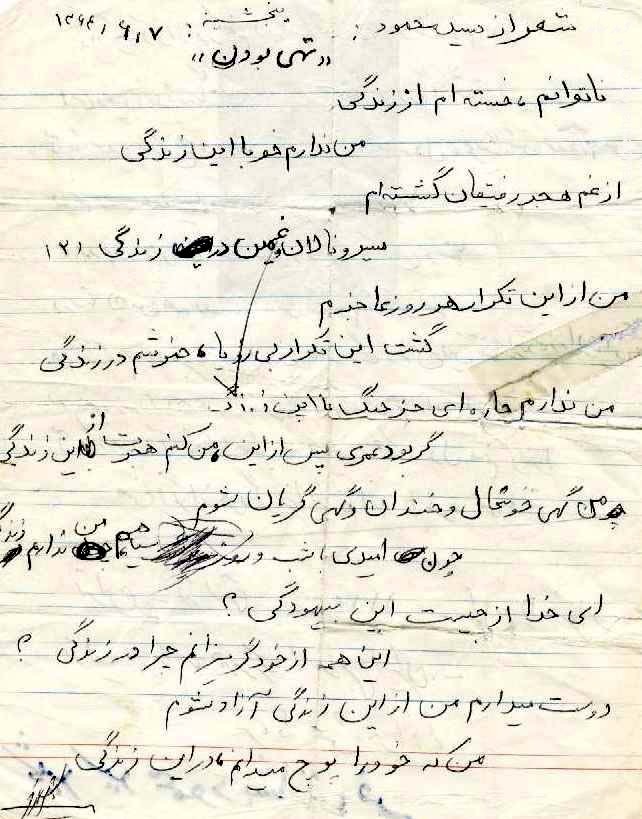 شعر از سید محمود : پنجشنبه : ۱۳۶۴/۶/۷
«تهی بودن»
ناتوانم، خسته ام از زندگی
من ندارم خو با این زندگی
از غم هجر رفیقان گشته ام
سیر و نالان و غمین در زندگی (۲)
من از این تکرار هر روز عاجزم
گشت این تکرار بی رؤیا، در زندگی
من ندارم چاره ای جز جنگ با این زندگی
گر بود عمری پس از این، من کنم هجرت از این زندگی
من گهی خوشحال و خندان و گهی گریان شوم
چون امیدی با شب و هم من ندارم
ای خدا از چیست این بیهودگی ؟
این همه از خود گریزانم چرا در زندگی ؟
دوست میدارم من از این زندگی آزاد شوم
من که خود را پوچ میدانم در این زندگی